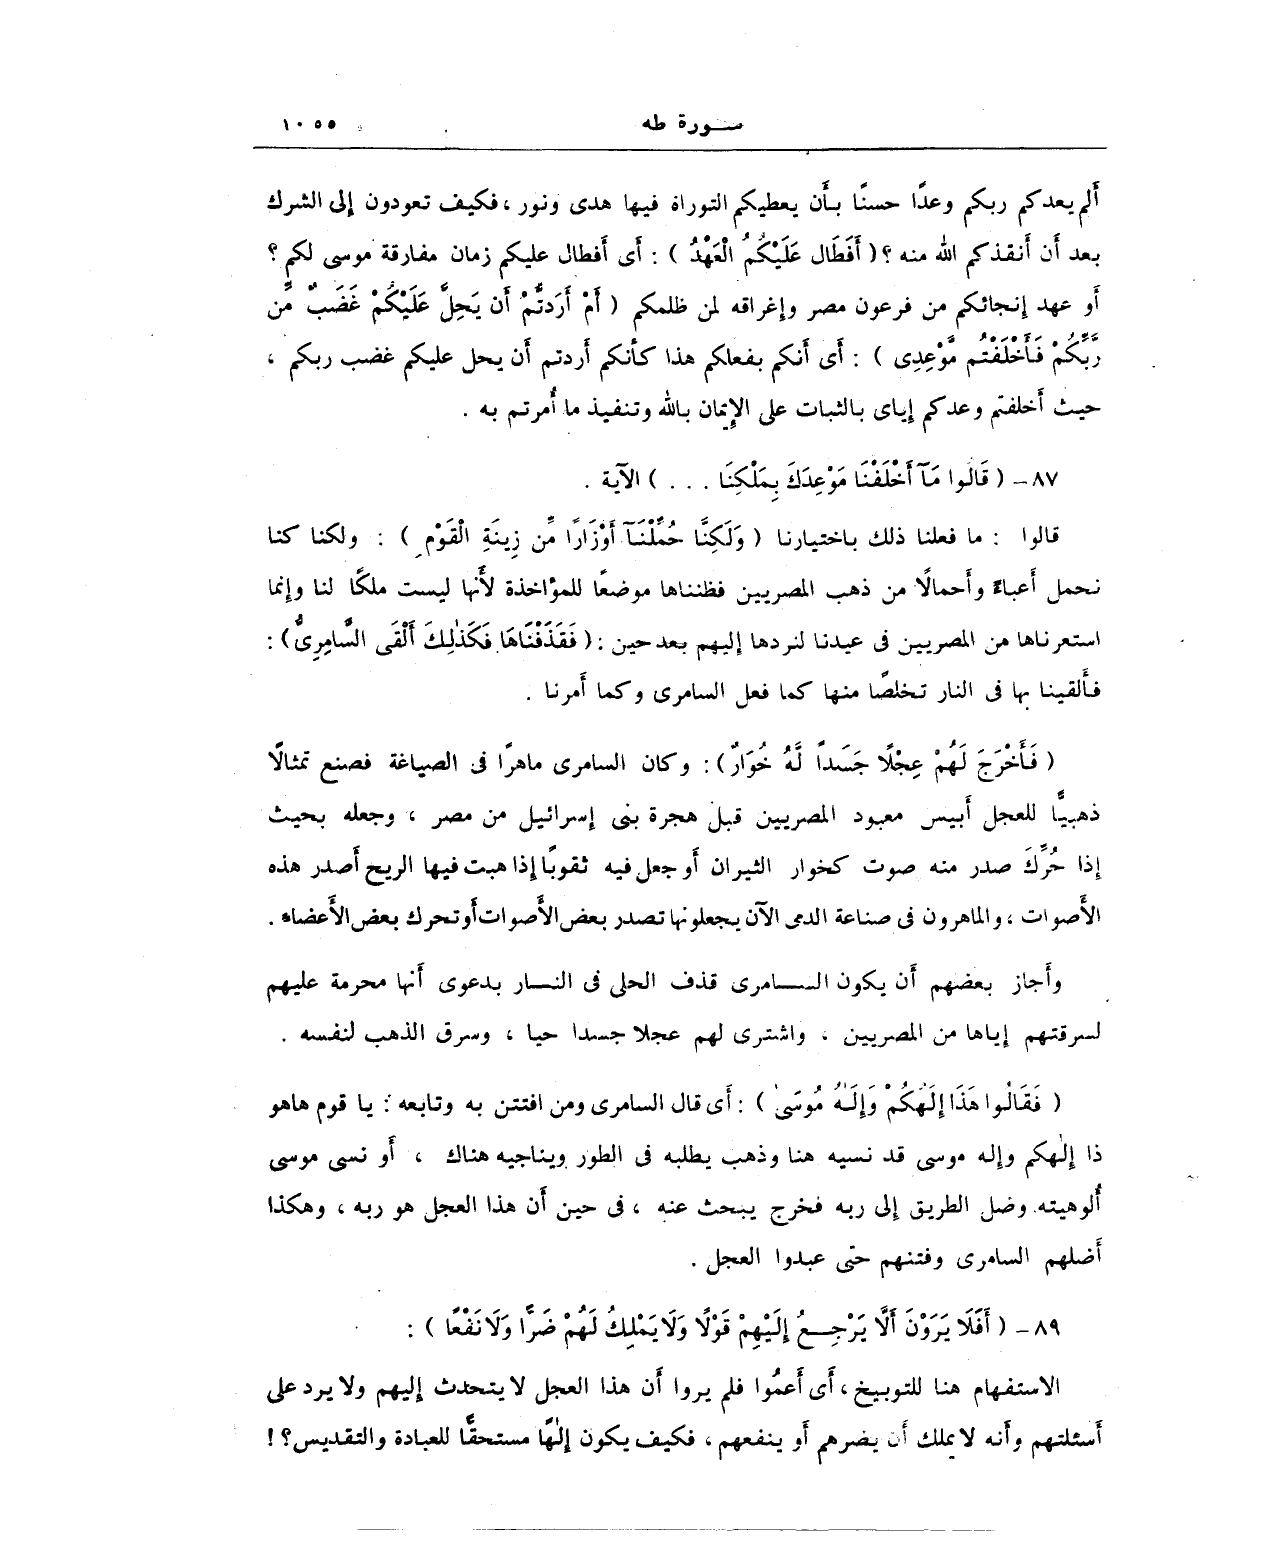 سورة طه
١٠٥٥
ألم يعدكم ربكم وعدًا حسنًا بأن يعطيكم التوراة فيها هدى ونور ، فكيف تعودون إلى الشرك
بعد أن أنقذكم الله منه ؟ ( أَفَطَالَ عَلَيْكُمُ الْعَهْدُ ) : أى أفطال عليكم زمان مفارقة موسى لكم ؟
أو عهد إنجائكم من فرعون مصر وإغراقه لمن ظلمكم ( أَمْ أَرَدتُّمْ أَن يَحِلَّ عَلَيْكُمْ غَضَبٌ مِّن
رَّبِّكُمْ فَأَخْلَفْتُم مَّوْعِدِى ) : أى أنكم بفعلكم هذا كأنكم أردتم أن يحل عليكم غضب ربكم ،
حيث أخلفتم وعدكم إياى بالثبات على الإيمان بالله وتنفيذ ما أُمرتم به .
٨٧ - ( قَالُوا مَآ أَخْلَفْنَا مَوْعِدَكَ بِمَلْكِنَا . . . ) الآية .
قالوا : ما فعلنا ذلك باختيارنا ( وَلَكِنَّا حُمِّلْنَآ أَوْزَارًا مِّن زِينَةِ الْقَوْمِ ) : ولكنا كنا
نحمل أعباءً وأحمالًا من ذهب المصريين فظنناها موضعًا للمؤاخذة لأنها ليست ملكًا لنا وإنما
استعرناها من المصريين فى عيدنا لنردها إليهم بعد حين : ( فَقَذَفْنَاهَا فَكَذَٰلِكَ أَلْقَى السَّامِرِىُّ ) :
فألقينا بها فى النار تخلصًا منها كما فعل السامرى وكما أمرنا .
( فَأَخْرَجَ لَهُمْ عِجْلًا جَسَداً لَّهُ خُوَارٌ ) : وكان السامرى ماهرًا فى الصياغة فصنع تمثالًا
ذهبيًّا للعجل أبيس معبود المصريين قبل هجرة بنى إسرائيل من مصر ، وجعله بحيث
إذا حُرِّكَ صدر منه صوت كخوار الثيران أو جعل فيه ثقوبًا إذا هبت فيها الريح أصدر هذه
الأصوات ، والماهرون فى صناعة الدمى الآن يجعلونها تصدر بعض الأصوات أو تحرك بعض الأعضاء .
وأجاز بعضهم أن يكون السامرى قذف الحلى فى النار بدعوى أنها محرمة عليهم
لسرقتهم إياها من المصريين ، واشترى لهم عجلا جسدا حيا ، وسرق الذهب لنفسه .
( فَقَالُوا هَذَا إِلَهُكُمْ وَإِلَهُ مُوسَىٰ ) : أى قال السامرى ومن افتتن به وتابعه : يا قوم هاهو
ذا إلٰهكم وإله موسى قد نسيه هنا وذهب يطلبه فى الطور ويناجيه هناك ، أو نسى موسى
أُلوهيته وضل الطريق إلى ربه فخرج يبحث عنه ، فى حين أن هذا العجل هو ربه ، وهكذا
أضلهم السامرى وفتنهم حتى عبدوا العجل .
٨٩ - ( أَفَلَا يَرَوْنَ أَلَّا يَرْجِعُ إِلَيْهِمْ قَوْلًا وَلَا يَمْلِكُ لَهُمْ ضَرًّا وَلَا نَفْعًا ) :
الاستفهام هنا للتوبيخ ، أى أعمُوا فلم يروا أن هذا العجل لا يتحدث إليهم ولا يرد على
أسئلتهم وأنه لا يملك أن يضرهم أو ينفعهم ، فكيف يكون إلٰهًا مستحقًّا للعبادة والتقديس ؟ !